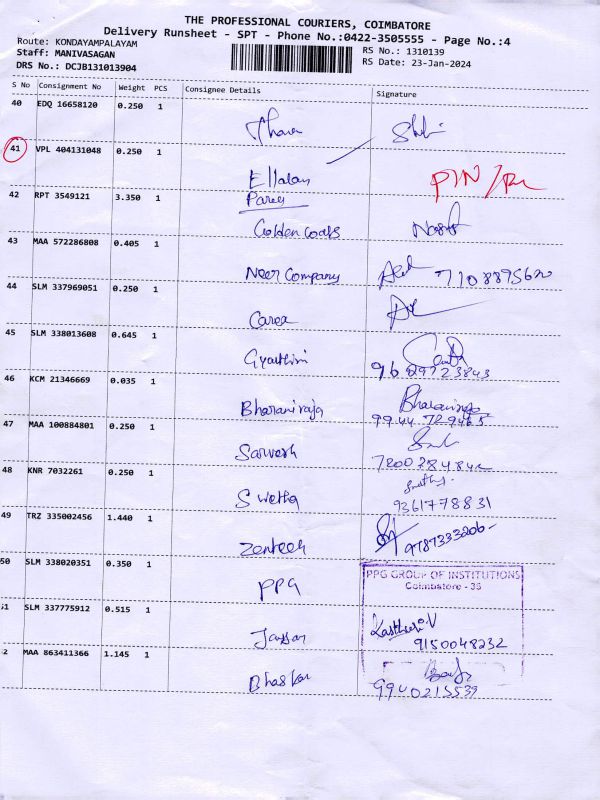 THE PROFESSIONAL COURIERS, COIMBATORE
Delivery Runsheet - SPT - Phone No.:0422-3505555 - Page No.:4
Route: KONDAYAMPALAYAM
Staff: MANIVASAGAN
DRS No.: DCJB131013904
RS No.: 1310139
RS Date: 23-Jan-2024
S No Consignment No Weight PCS Consignee Details Signature
40 EDQ 16658120 0.250 1
41 VPL 404131048 0.250 1
Ellalan
42 RPT 3549121 3.350 1
Golden Coats
43 MAA 572286808 0.405 1
Neer Company 7108895620
44 SLM 337969051 0.250 1
Carea
45 SLM 338013608 0.645 1
9629723843
46 KCM 21346669 0.035 1
Bharaniraja Bharaniraja
9944 729465
47 MAA 100884801 0.250 1
Sarvesh
48 KNR 7032261 0.250 1
Swetha
9361778831
49 TRZ 335002456 1.440 1
9787333206-
50 SLM 338020351 0.350 1
PPG
PPG GROUP OF INSTITUTIONS
Coimbatore - 35
51 SLM 337775912 0.515 1
Kasthuri.V
9150048232
2 MAA 863411366 1.145 1
Bhaskar
9940215539